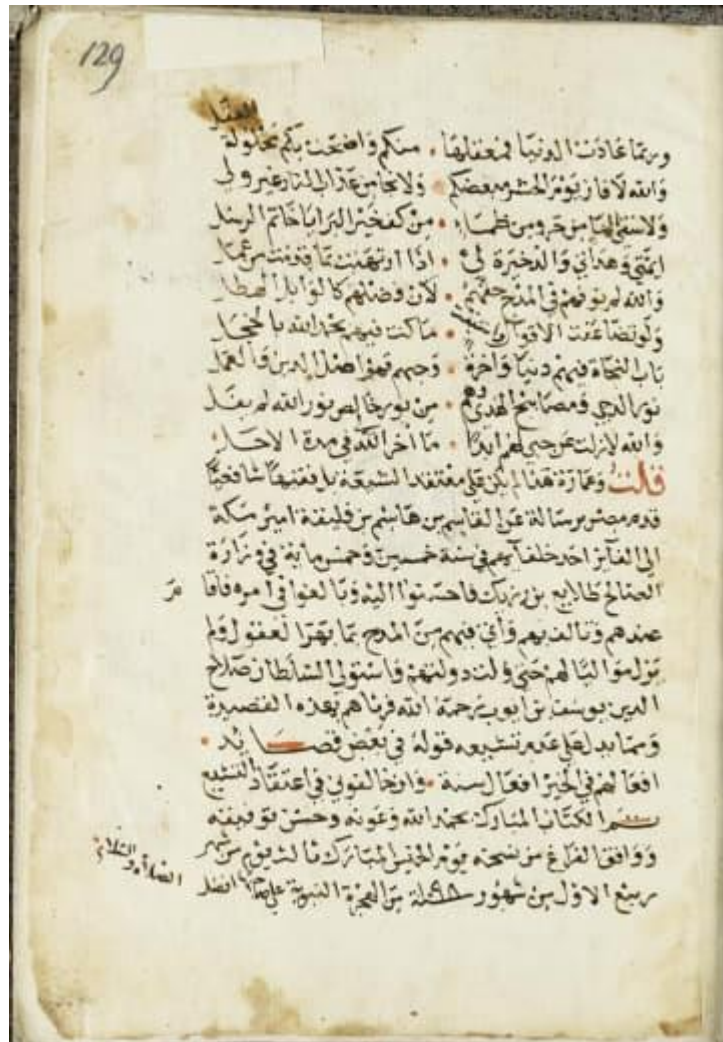 129
العقل
وربما عادت الدنيا لمعقلها • منكم واضحت بكم محلولة
والله لا فاز يوم الحشر مبغضكم • ولا نجا من عذاب النار غير ولي
ولا سقى الما من حر ومن ظماء • من كف خير البرايا خاتم الرسل
ائمتي وهداتي والذخيرة لي • اذا ارتهنت بما قدمت من عملي
والله لم نوفهم في المدح حقهم • لان فضلهم كالوابل الهطل
ولو تضاعفت الاقوال • ما كنت فيهم بحمد الله بالخجل
باب النجاة فهم دنيا واخرة • وحبهم فهو اصل الدين والعمل
نور الدجى ومصابيح الهدى وهم • من نور خالص نور الله لم يفل
والله لا زلت عن حبي لهم ابدا • ما اخر الله في مدة الاجل
قلت وعمارة هذا لم يكن على معتقد الشيعة بل فقيها شافعيا
قدم مصر برسالة عن القاسم بن هاشم بن فليتة امير مكة
الى الفائز احد خلفائهم في سنة خمسين وخمس مائة في وزارة
الصالح طلايع بن رزيك فاحسنوا اليه وبالغوا في امره فاقا
مر
عندهم وتالف بهم واتى فيهم من المدح بما بهر العقول ولم
يزل مواليا لهم حتى ولت دولتهم واستولى السلطان صلاح
الدين يوسف بن ايوب رحمه الله فرثاهم بهذه القصيدة
ومما يدل على عدم تشيعه قوله في بعض قصايد •
افعالهم في الخير افعال سنة • وان خالفوني في اعتقاد التشيع
تم الكتاب المبارك بحمد الله وعونه وحسن توفيقه
ووافق الفراغ من نسخه يوم الخميس المبارك ثالث يوم من شهر
ربيع الاول من شهور سنة من الهجرة النبوية على صاحبها افضل
الصلاة والسلام